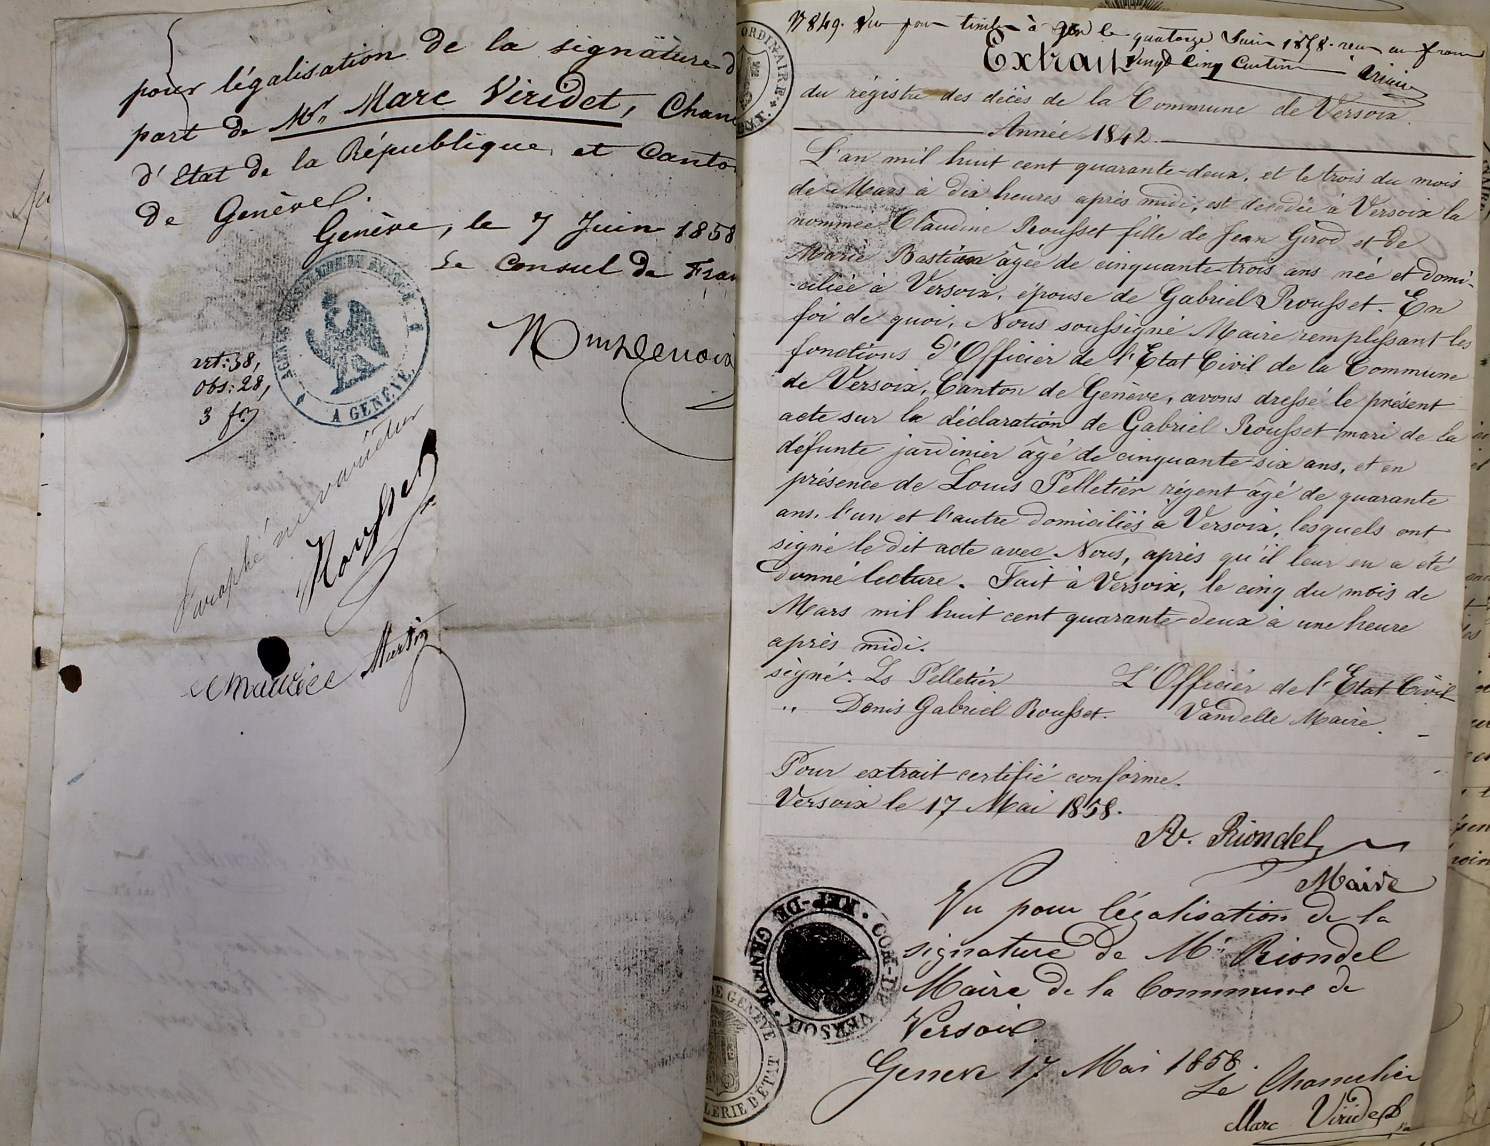 pour légalisation de la signature d
part de Mr. Marc Viridet, Chan
d'Etat de la République et Canto
de Genève.
Genève, le 7 Juin 1858
Le Consul de Fran
A GENÈVE
art: 38,
Obs: 28,
3 fr,
Paraphé ne varietur
Rousset
Maurice Martin
ORDINAIRE
N 849. Vu pour timbre à Gex le quatorze Juin 1858. reçu un franc
vingt cinq centimes
Extrait
du régistre des décès de la Commune de Versoix.
Année 1842.
L'an mil huit cent quarante-deux, et le trois du mois
de Mars à dix heures après midi, est décédée à Versoix la
nommée Claudine Rousset fille de Jean Girod et de
Marie Bastian âgée de cinquante-trois ans née et domi-
-ciliée à Versoix, épouse de Gabriel Rousset. En
foi de quoi, Nous soussigné Maire remplissant les
fonctions d'Officier de l'Etat Civil de la Commune
de Versoix, Canton de Genève, avons dressé le présent
acte sur la déclaration de Gabriel Rousset mari de la
défunte jardinier âgé de cinquante-six ans, et en
présence de Louis Pelletier régent âgé de quarante
ans, l'un et l'autre domiciliés à Versoix, lesquels ont
signé le dit acte avec Nous, après qu'il leur en a été
donné lecture. Fait à Versoix, le cinq du mois de
Mars mil huit cent quarante-deux à une heure
après midi.
signé: Ls Pelletier L'Officier de l'Etat Civil
" Denis Gabriel Rousset. Vandelle Maire.
Pour extrait certifié conforme.
Versoix le 17 Mai 1858.
Av. Riondel
Maire
COM-DE VERSOIX • MAIRIE • REP-DE GENEVE
Vu pour légalisation de la
signature de Mr. Riondel
Maire de la Commune de
Versoix
Genève 17 Mai 1858.
Le Chancelier
Marc Viridet
DE GENÈVE
LERIE D'ÉTAT